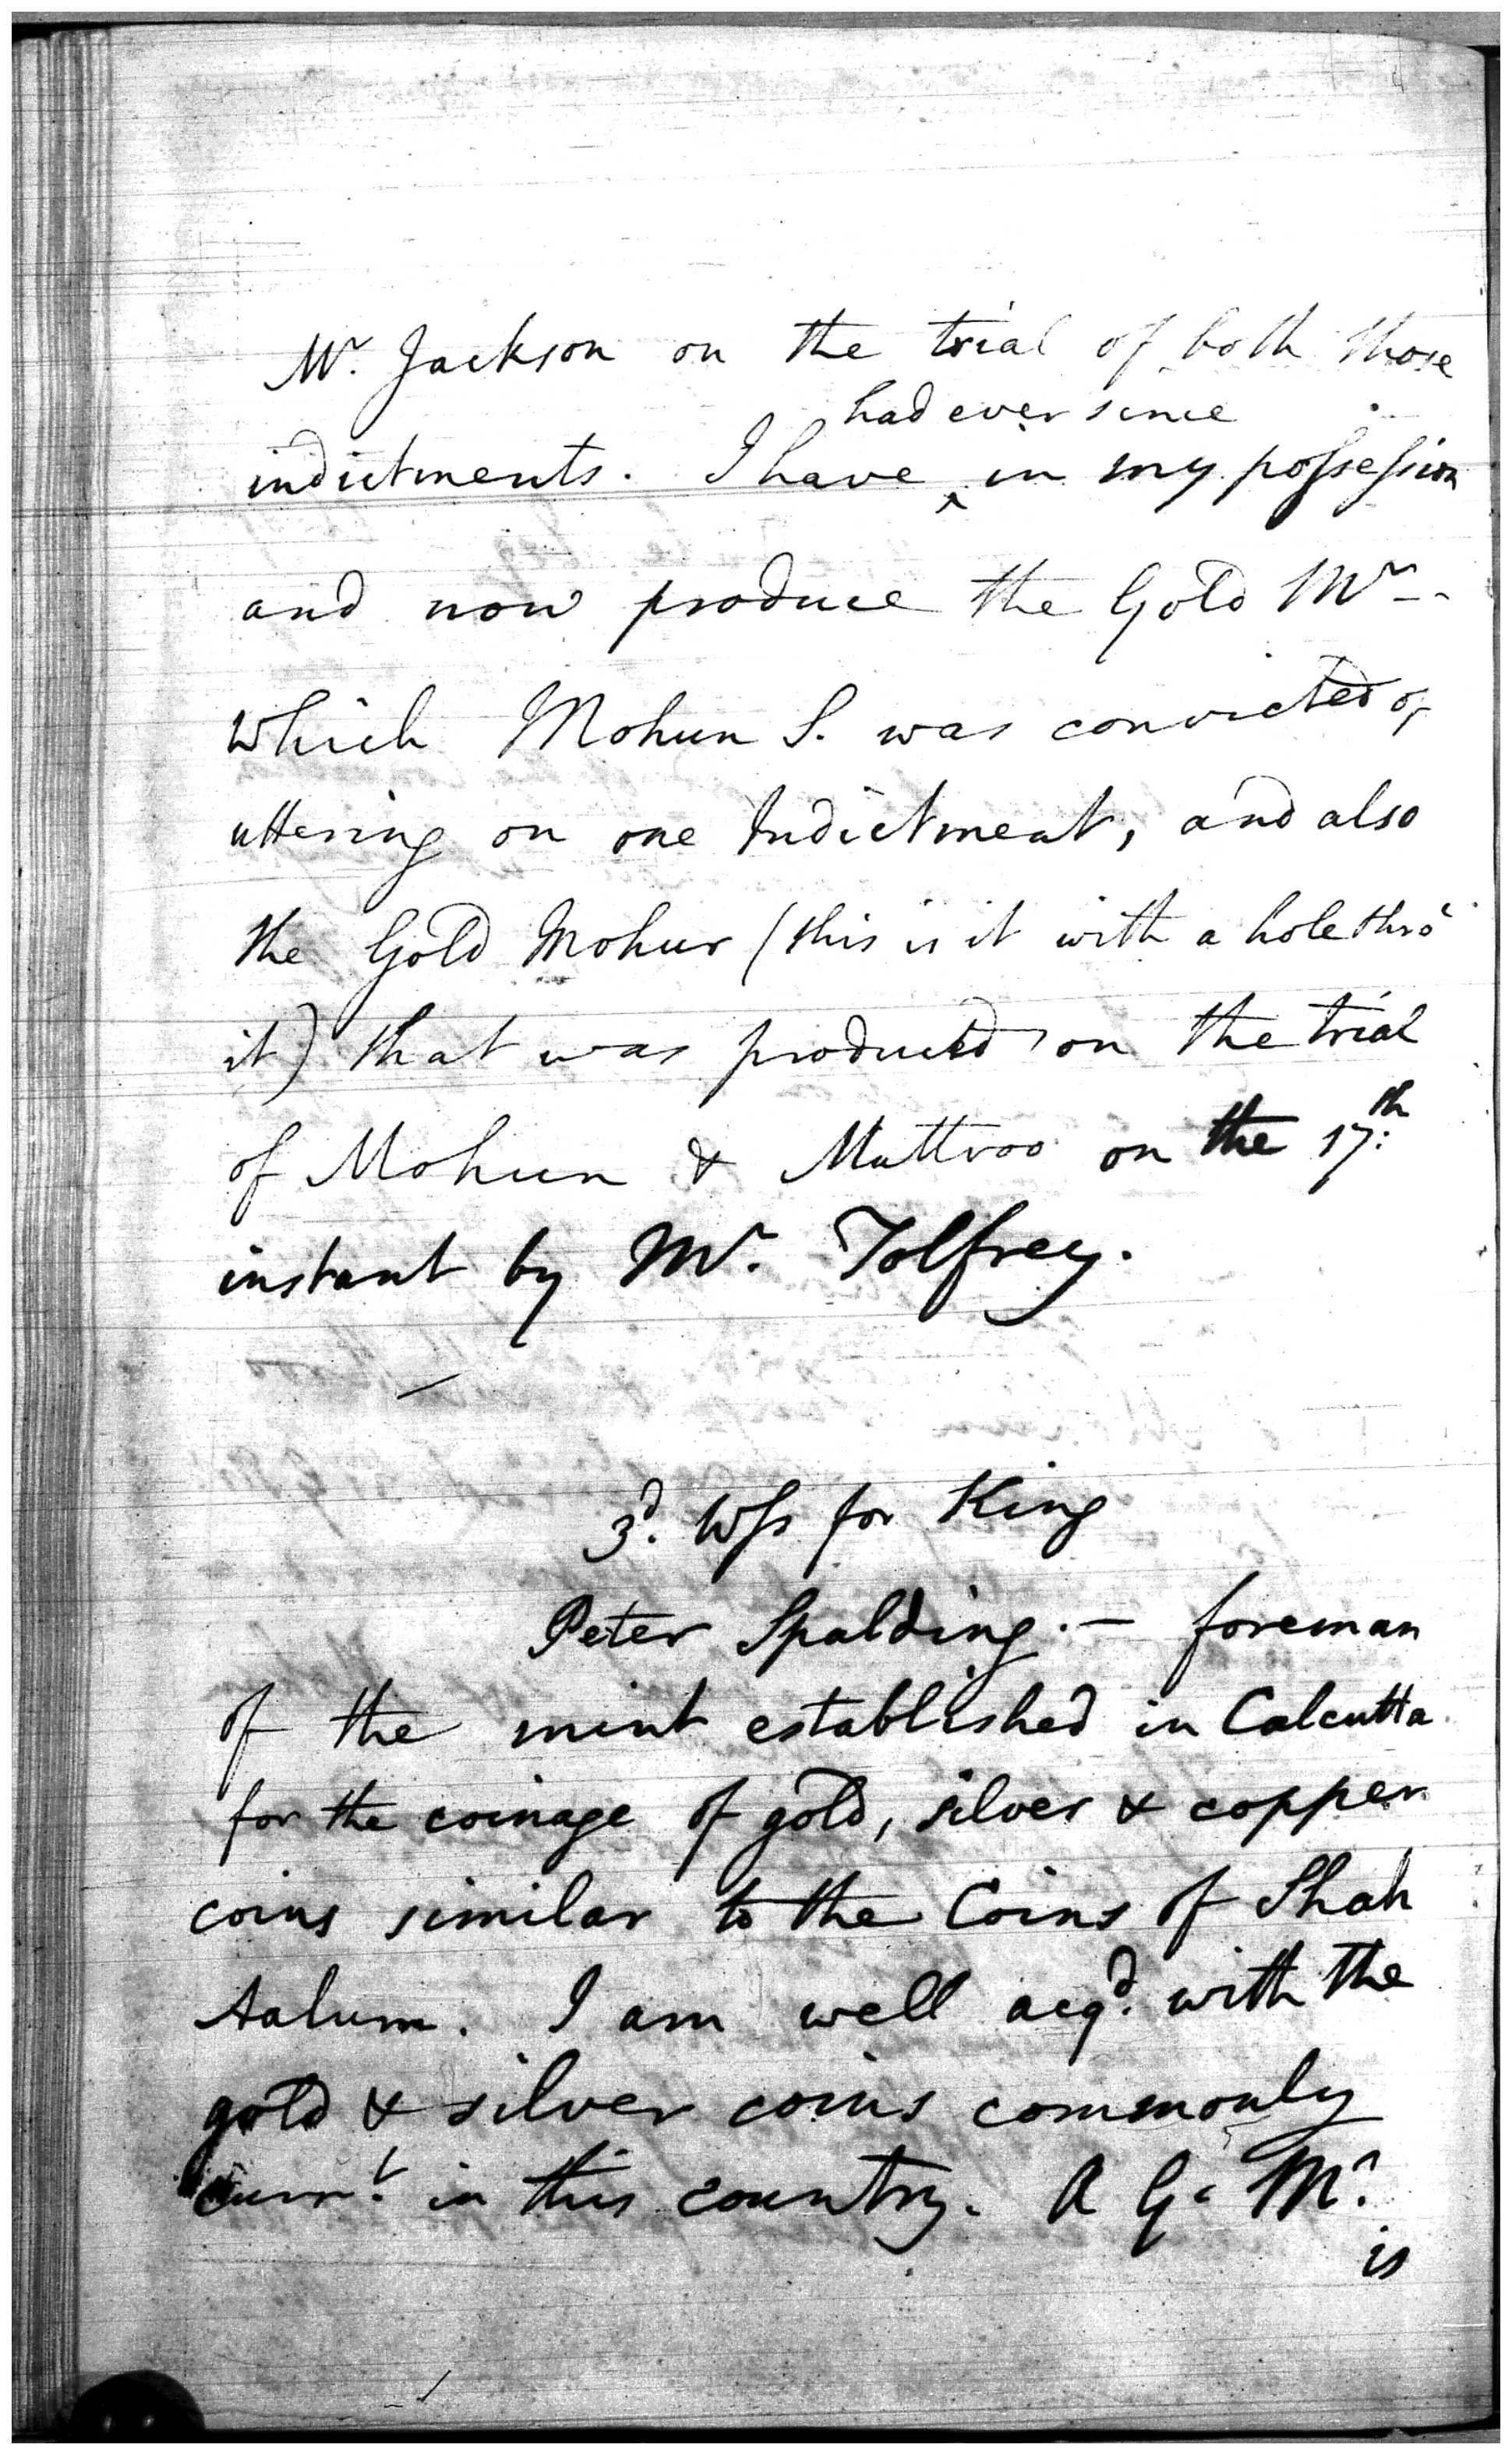 Mr. Jackson on the trial of both those
had ever since
indictments. I have ‸ in my possession
and now produce the Gold Mr --
which Mohun S. was convicted of
uttering on one Indictment, and also
the Gold Mohur (this is it with a hole thro'
it) that was produced on the trial
of Mohun & Muttroo on the 17th
instant by Mr. Tolfrey.
3d. Wss for King
Peter Spalding. — foreman
of the mint established in Calcutta
for the coinage of gold, silver & copper
coins similar to the Coins of Shah
Aalum. I am well acqd. with the
gold & silver coins commonly
currt. in this country. A G. Mr.
is